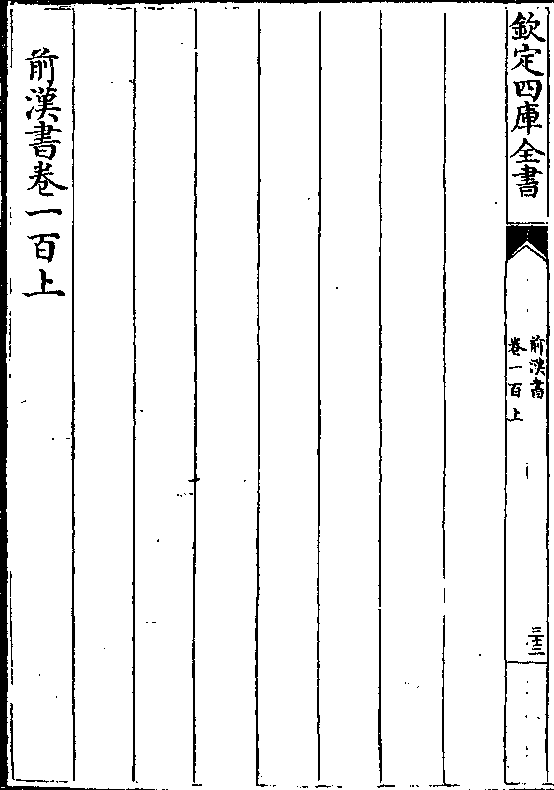 欽定四庫全書
前漢書
卷一百上
三十三
前漢書卷一百上